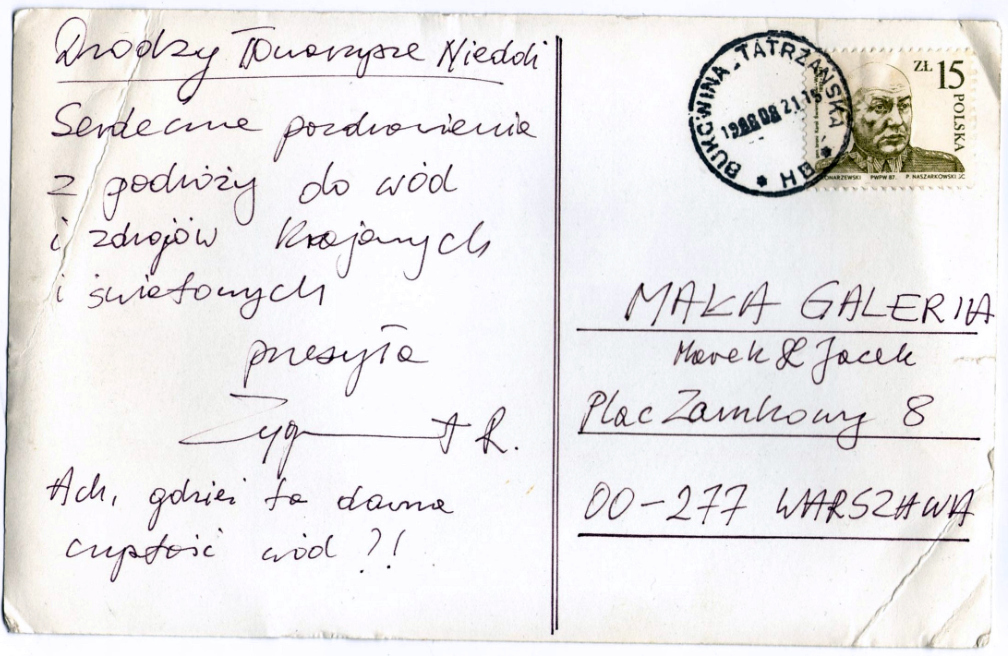 Drodzy Towarzysze Niedoli
Serdeczne pozdrowienia
z podróży do wód
i zdrojów krajowych
i światowych
przesyła
Zygmunt R.
Ach, gdzież ta dawna
czystość wód ?!
BUKOWINA TATRZAŃSKA
21.15
ZŁ 15
POLSKA
PWPW 87. P. NASZARKOWSKI SC.
MAŁA GALERIA
Marek & Jacek
Plac Zamkowy 8
00-277 WARSZAWA